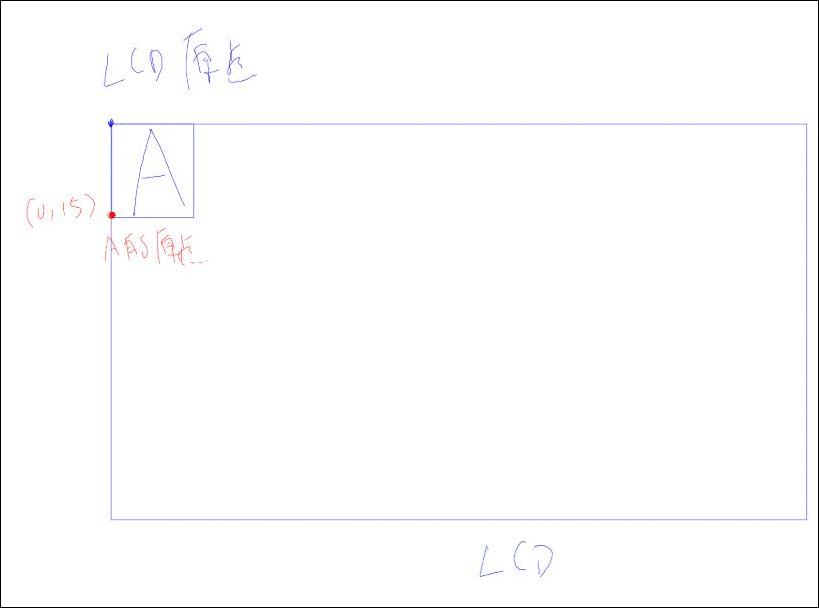 LCD 原点
A
(0,15)
A的原点
LCD